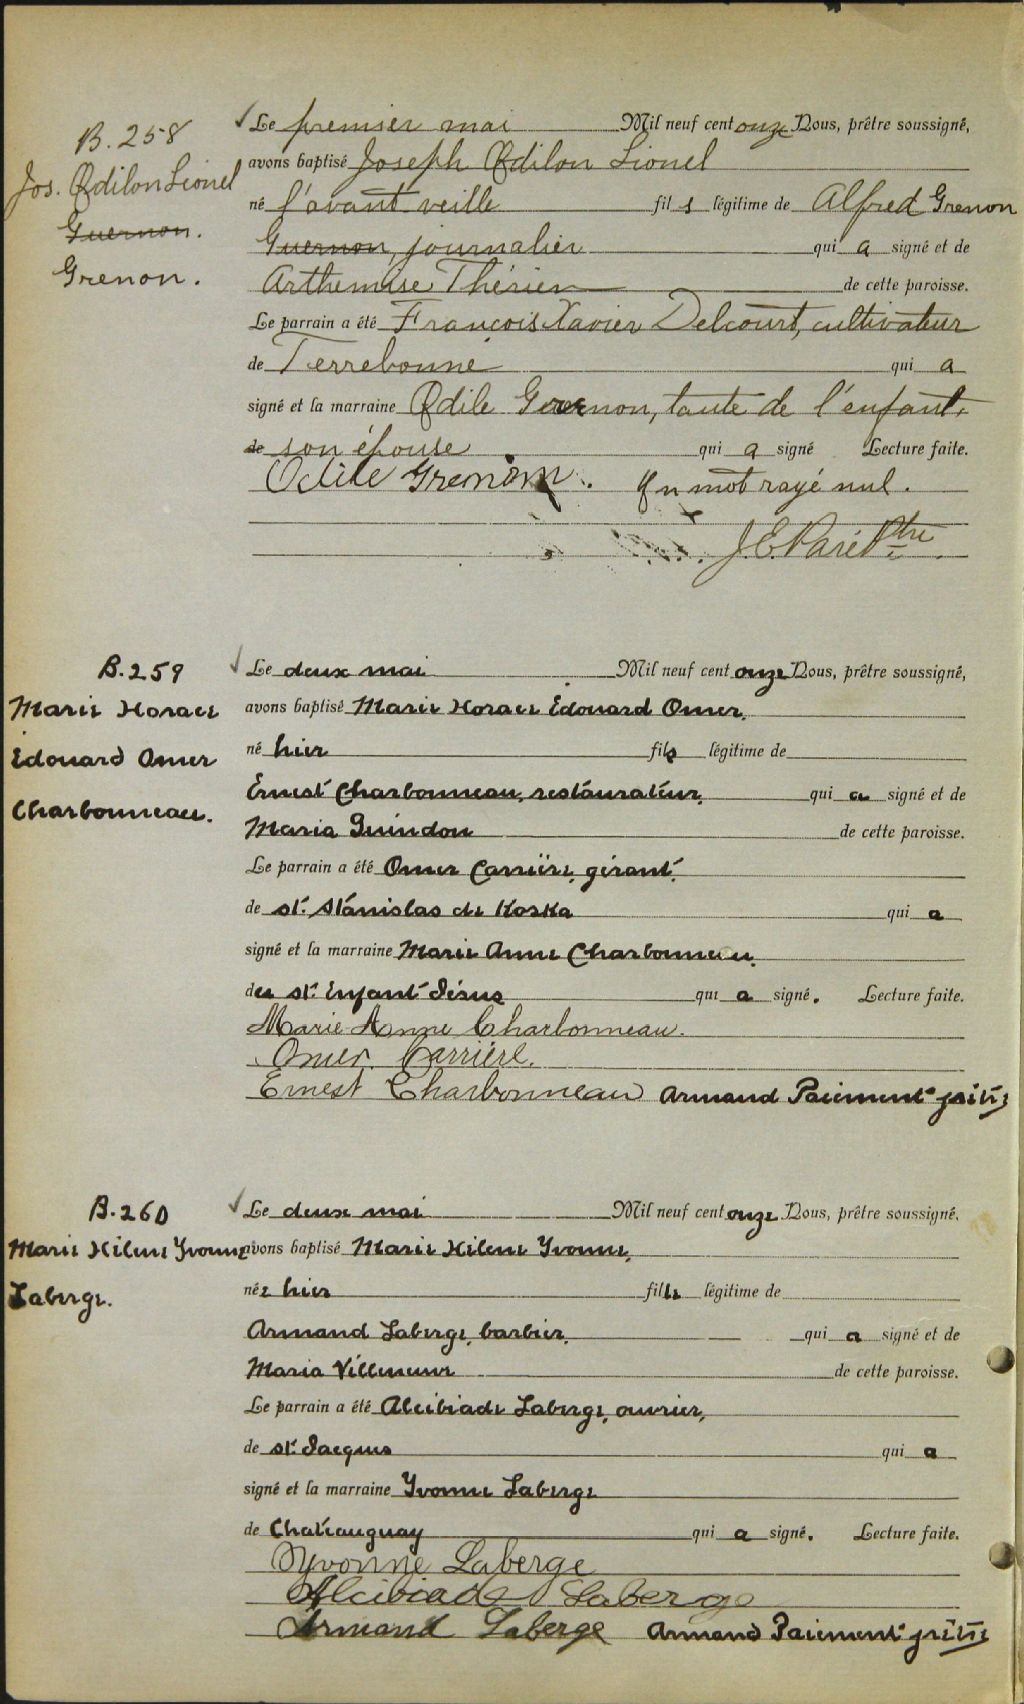 B. 258
Jos. Odilon Lionel
Guernon.
Grenon.
Le premier mai Mil neuf cent onze Nous, prêtre soussigné,
avons baptisé Joseph Odilon Lionel
né l'avant veille fil s légitime de Alfred Grenon
Guernon, journalier qui a signé et de
Arthemise Thérien de cette paroisse.
Le parrain a été François Xavier Delcourt, cultivateur
de Terrebonne qui a
signé et la marraine Odile Grenon, tante de l'enfant,
de son épouse qui a signé Lecture faite.
Odile Grenon. Un mot rayé nul.
J. E. Paré Ptre.
B. 259
Marie Horace
Edouard Omer
Charbonneau.
Le deux mai Mil neuf cent onze Nous, prêtre soussigné,
avons baptisé Marie Horace Edouard Omer,
né hier fils légitime de
Ernest Charbonneau, restaurateur, qui a signé et de
Maria Guindon de cette paroisse.
Le parrain a été Omer Carrière, gérant,
de St. Stanislas de Koska qui a
signé et la marraine Marie Anne Charbonneau,
du St. Enfant Jésus qui a signé. Lecture faite.
Marie-Anne Charbonneau.
Omer Carrière.
Ernest Charbonneau Armand Paiement ptre
B. 260
Marie Hélène Yvonne
Laberge.
Le deux mai Mil neuf cent onze Nous, prêtre soussigné.
avons baptisé Marie Hélène Yvonne,
née hier fille légitime de
Armand Laberge, barbier, qui a signé et de
Maria Villeneuve de cette paroisse.
Le parrain a été Alcibiade Laberge, ouvrier,
de St. Jacques qui a
signé et la marraine Yvonne Laberge
de Chateauguay qui a signé. Lecture faite.
Yvonne Laberge
Alcibiade Laberge
Armand Laberge Armand Paiement ptre